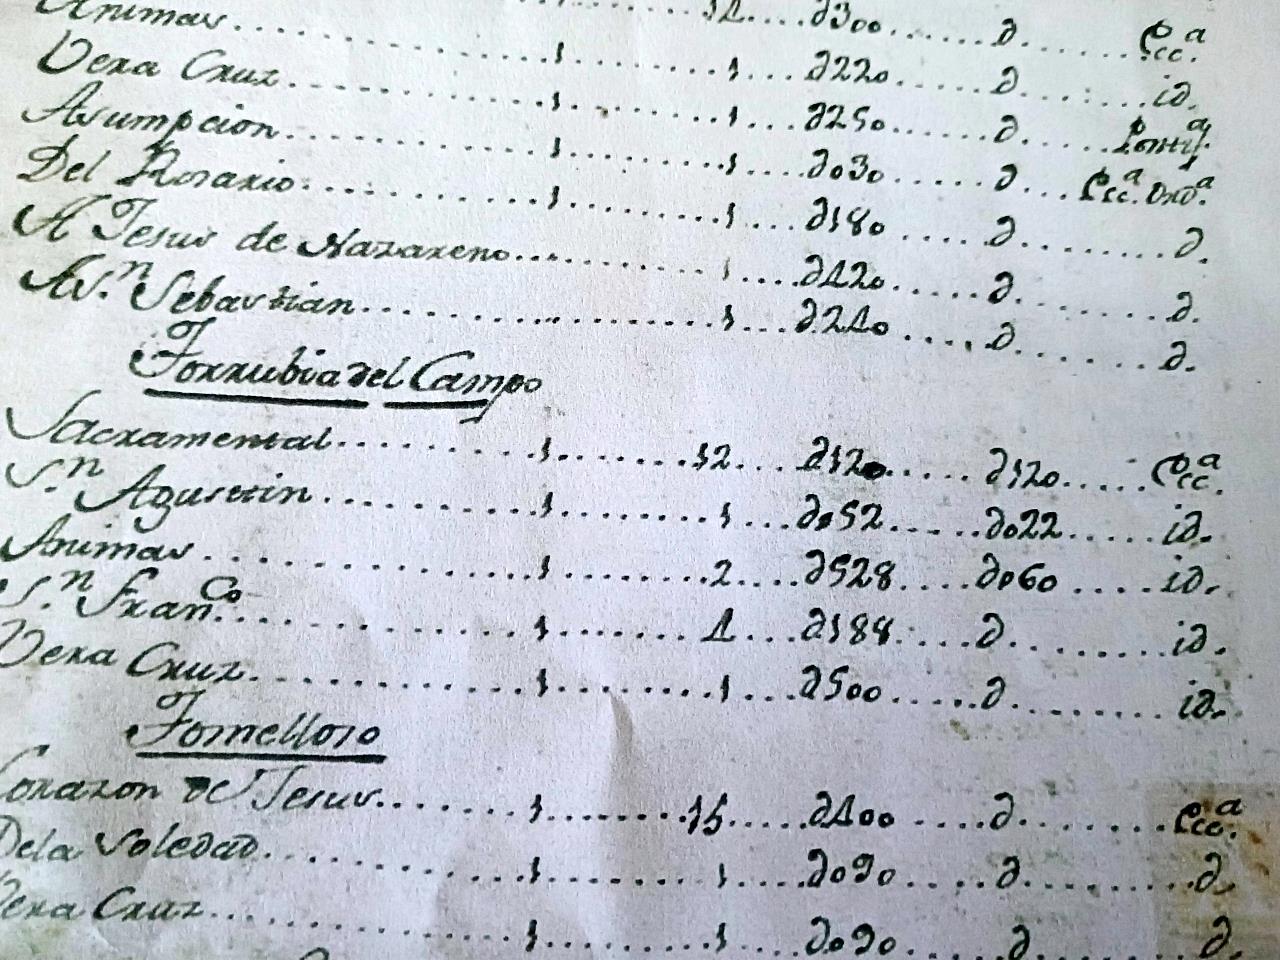 Animas........ 1........14....∂300......∂......Ecc.ª
Vera Cruz........1........1....∂220....∂......id.
Asumpcion........1........1....∂250....∂......Pontif.ª
Del Rosario........1........1....∂030....∂....Ecc.ª Ord.ª
A Jesus de Nazareno........1........1....∂180....∂......∂.
A S.n Sebastian........1....∂420....∂......∂.
1....∂240....∂......∂.
Torrubia del Campo
Sacramental........1........12....∂120....∂120....Ecc.ª
S.n Agustin........1........1....∂052....∂022....id.
Animas........1........2....∂528....∂060....id.
S.n Fran.co........1........4....∂188....∂......id.
Vera Cruz........1........1....∂500....∂......id.
Tomelloso
Corazon de Jesus........1........15....∂400....∂......Ecc.ª
De la Soledad........1........1....∂090....∂......∂.
Vera Cruz........1........1....∂090....∂......∂.